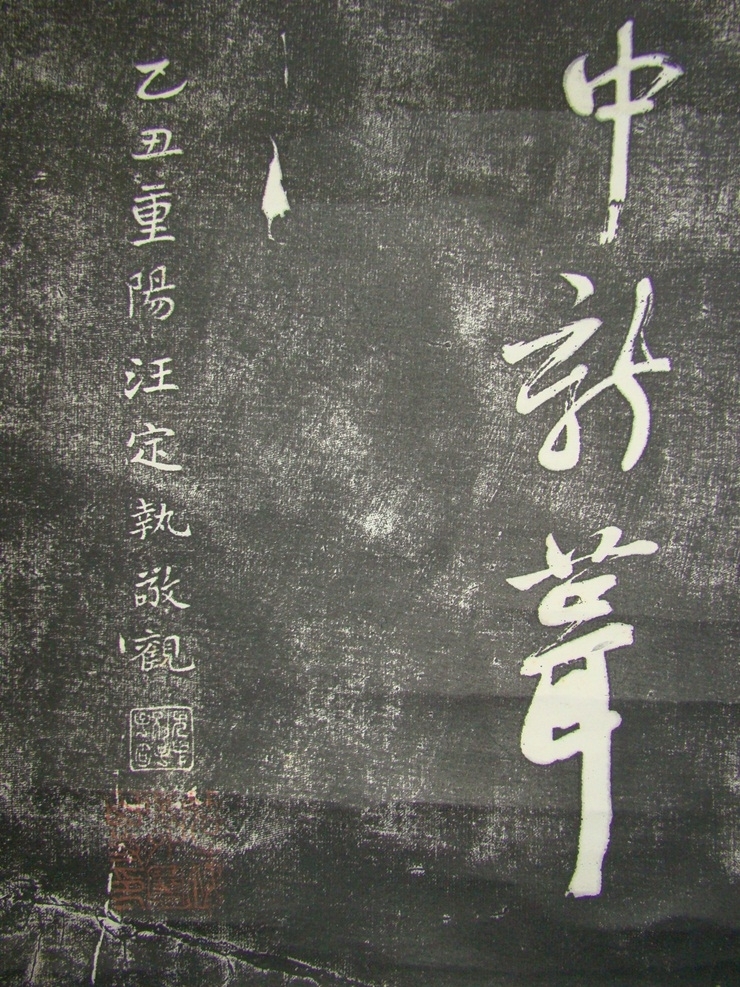 中新葺
乙丑重陽汪定執敬觀